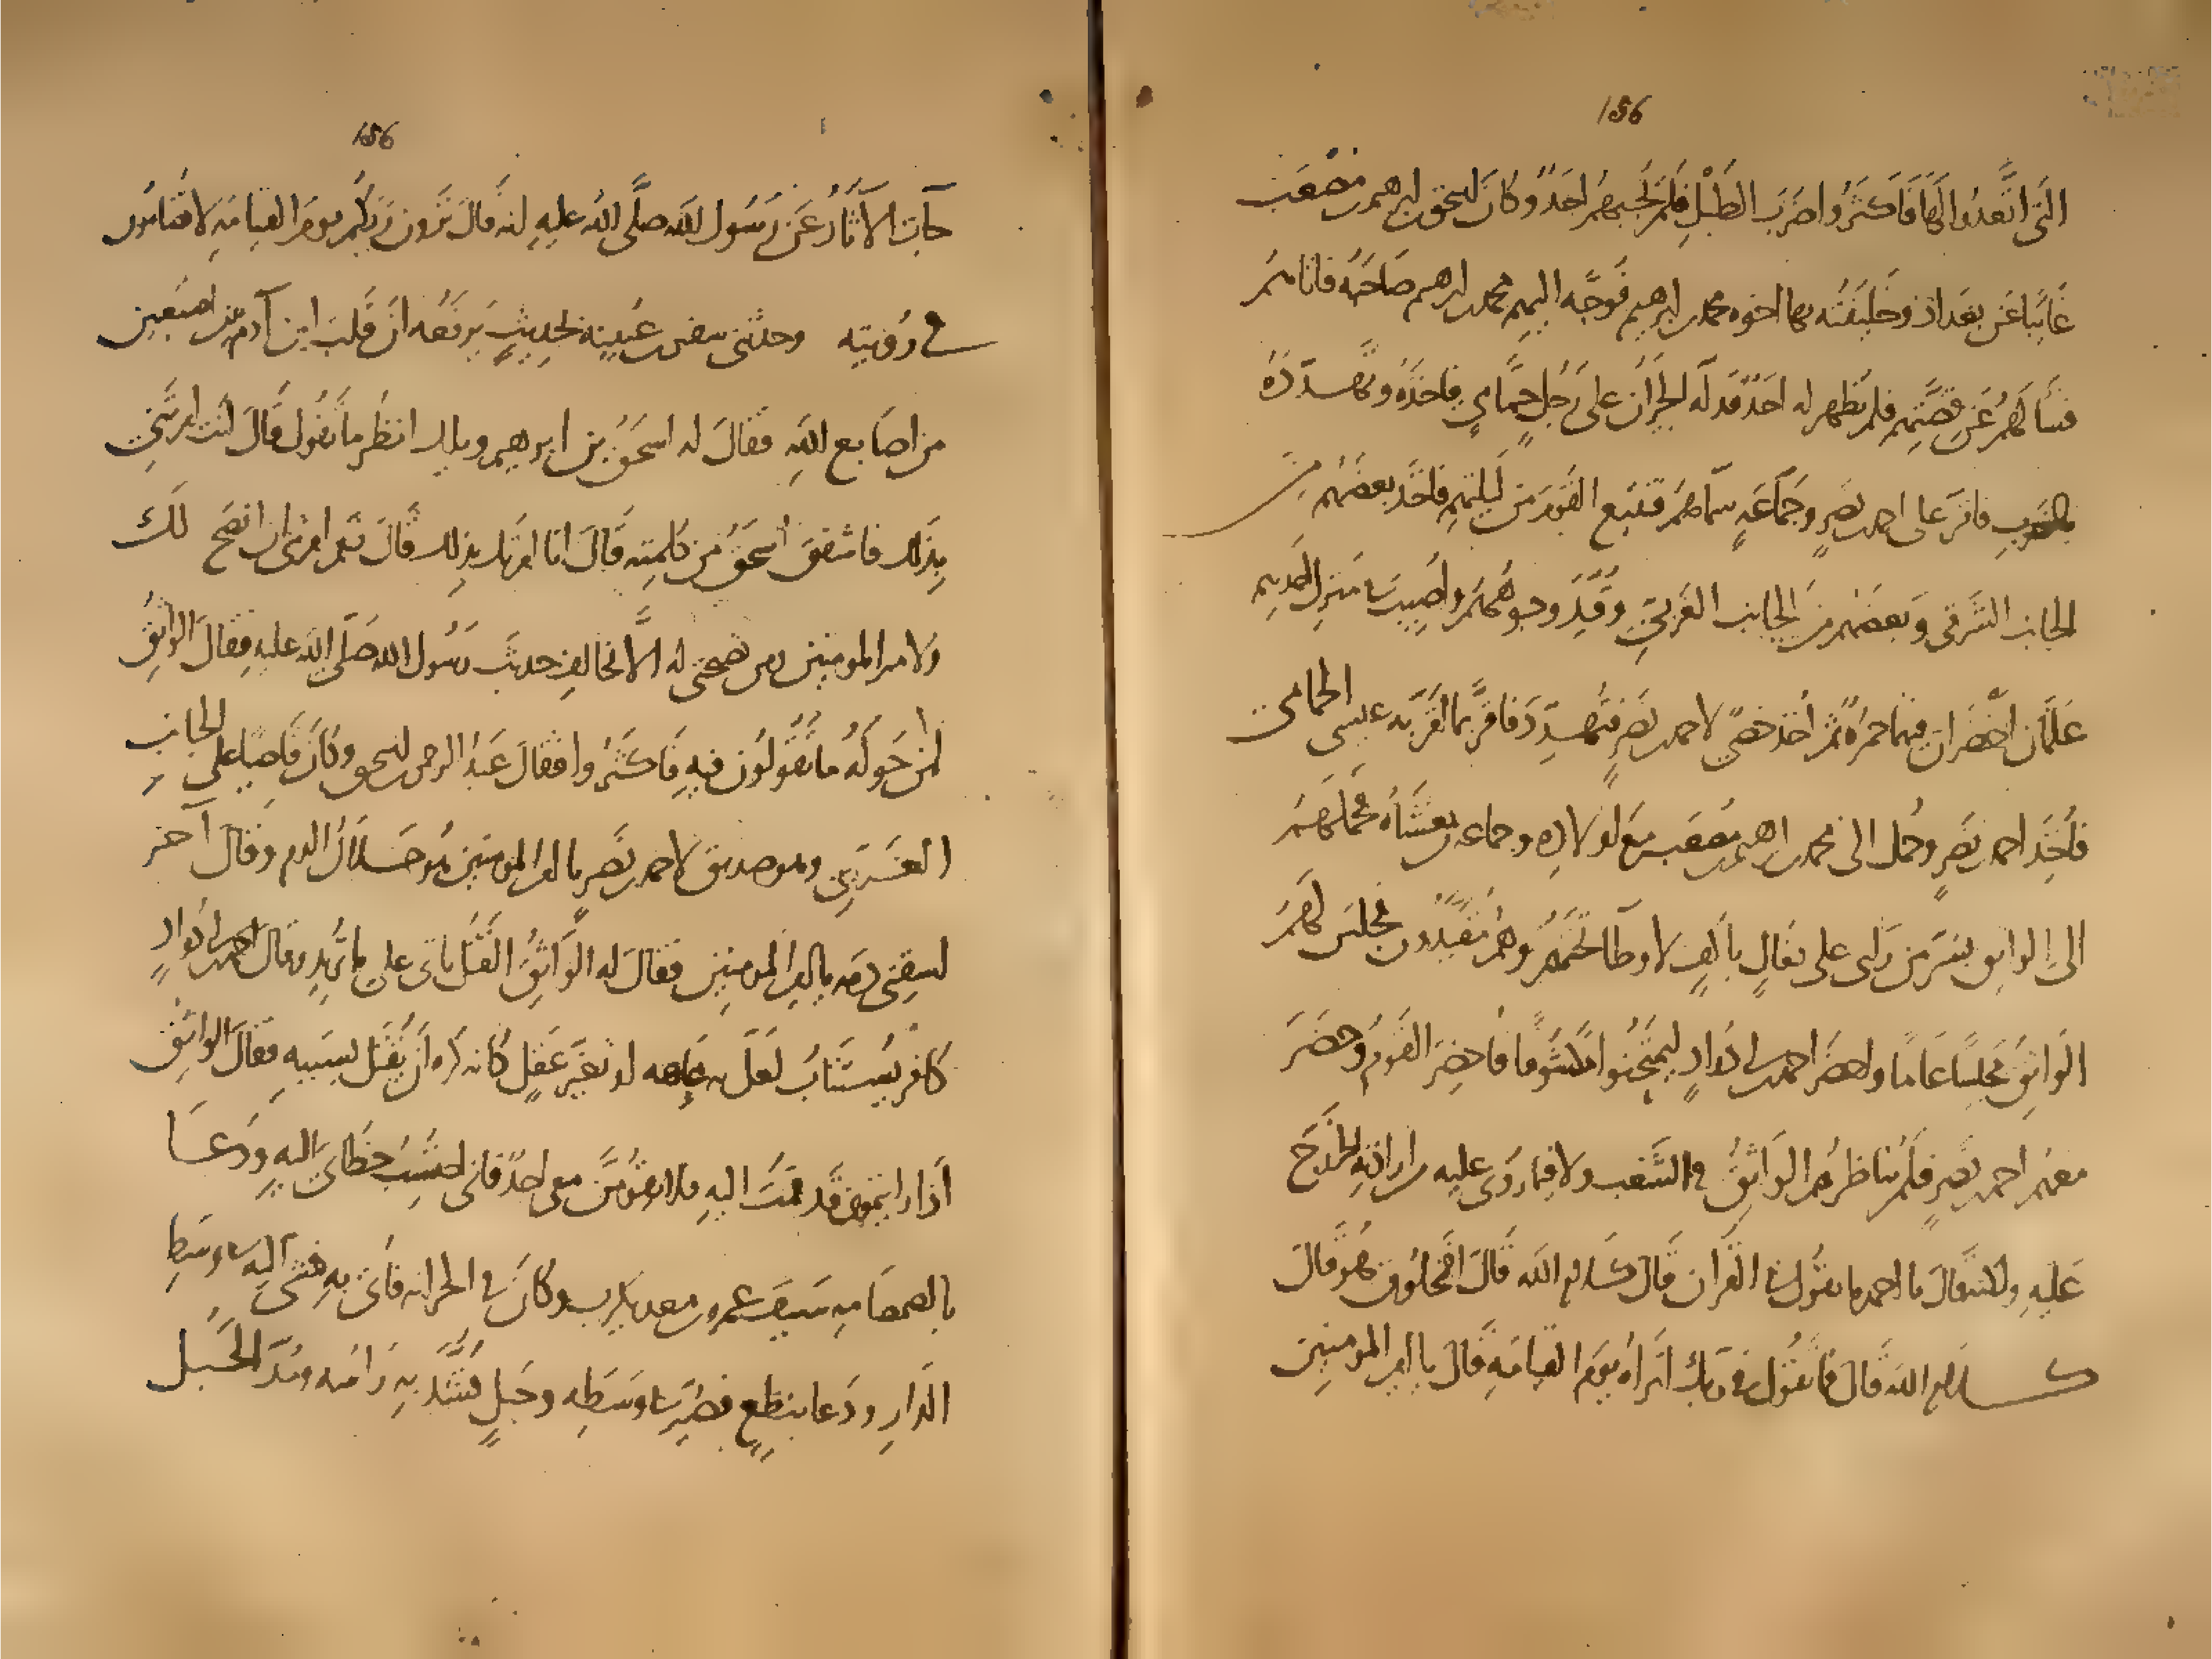 156
التى اتعدوا لها فاكثروا ضرب الطبل فلم يجبهم احد وكان اسحق بن ابرهيم بن مصعب
غائبا عن بغداذ وخليفته بها اخوه محمد بن ابرهيم فوجه اليهم محمد بن ابرهيم صاحبه فاتاهم
فسألهم عن قصتهم فلم يظهر له احد فدله الجيران على رجل حمامى فاخذه وتهدده
بالضرب فاقر على احمد بن نصر وجماعة سماهم فتتبع القوم من ليلتهم فاخذ بعضهم من
الجانب الشرقى وبعضهم من الجانب الغربى وقيد وجوههم واصيب فى منزل احدهم
علمان اخضران فيهما حمرة ثم اخذ خصى لاحمد بن نصر فتهدد فاقر بما اقر به عيسى الحمامى
فاخذ احمد بن نصر وحمل الى محمد بن ابرهيم بن مصعب مع اولاده وجماعة يغشاه فحملهم
الى الواثق بسر من رأى على بغال باكف لا وطآ تحتهم وهم مقيدون فجلس لهم
الواثق مجلسا عاما واحضر احمد بن ابى دواد ليمتحنوا مكشوفا فاحضر القوم وحضر
معهم احمد بن نصر فلم يناظرهم الواثق فى الشغب ولا فيما روى عليه من ارادته الخروج
عليه ولكنه قال يا احمد ما تقول فى القرآن قال كلام الله قال افمخلوق هو قال
كلام الله قال فما تقول فى ربك اتراه يوم القيامة قال يا امير المومنين
156
جآت الآثار عن رسول الله صلى الله عليه انه قال ترون ربكم يوم القيامة لا تضامون
فى رؤيته وحدثنى سفين بن عيينة بحديث يرفعه ان قلب ابن آدم بين اصبعين
من اصابع الله فقال له اسحق بن ابرهيم ويلك انظر ما تقول قال انت امرتنى
بذلك فاشفق اسحق من كلمته قال انا امرتك بذلك قال نعم امرتنى ان انصح لك
ولامير المومنين ومن نصحتى له الا تخالف حديث رسول الله صلى الله عليه فقال الواثق
لمن حوله ما تقولون فيه فاكثروا فقال عبد الرحمن بن اسحق وكان قاضيا على الجانب
الغربى وهو صديق لاحمد بن نصر يا امير المومنين هو حلال الدم وقال آخر
اسقنى دمه يا امير المومنين فقال له الواثق القتل ياتى على ما تريد وقال احمد بن ابى دواد
كافر يستتاب لعل به عاهة او تغير عقل كانه كره ان يقتل بسببه فقال الواثق
اذا رايتمونى قد قمت اليه فلا يقومن معى احد فانى احتسب خطاى اليه ودعا
بالصمصامة سيف عمرو بن معدى كرب وكان فى الخزانة فاتى به فمشى اليه فى وسط
الدار ودعا بنطع فصير فى وسطه وحبل فشد به راسه ومد الحبل